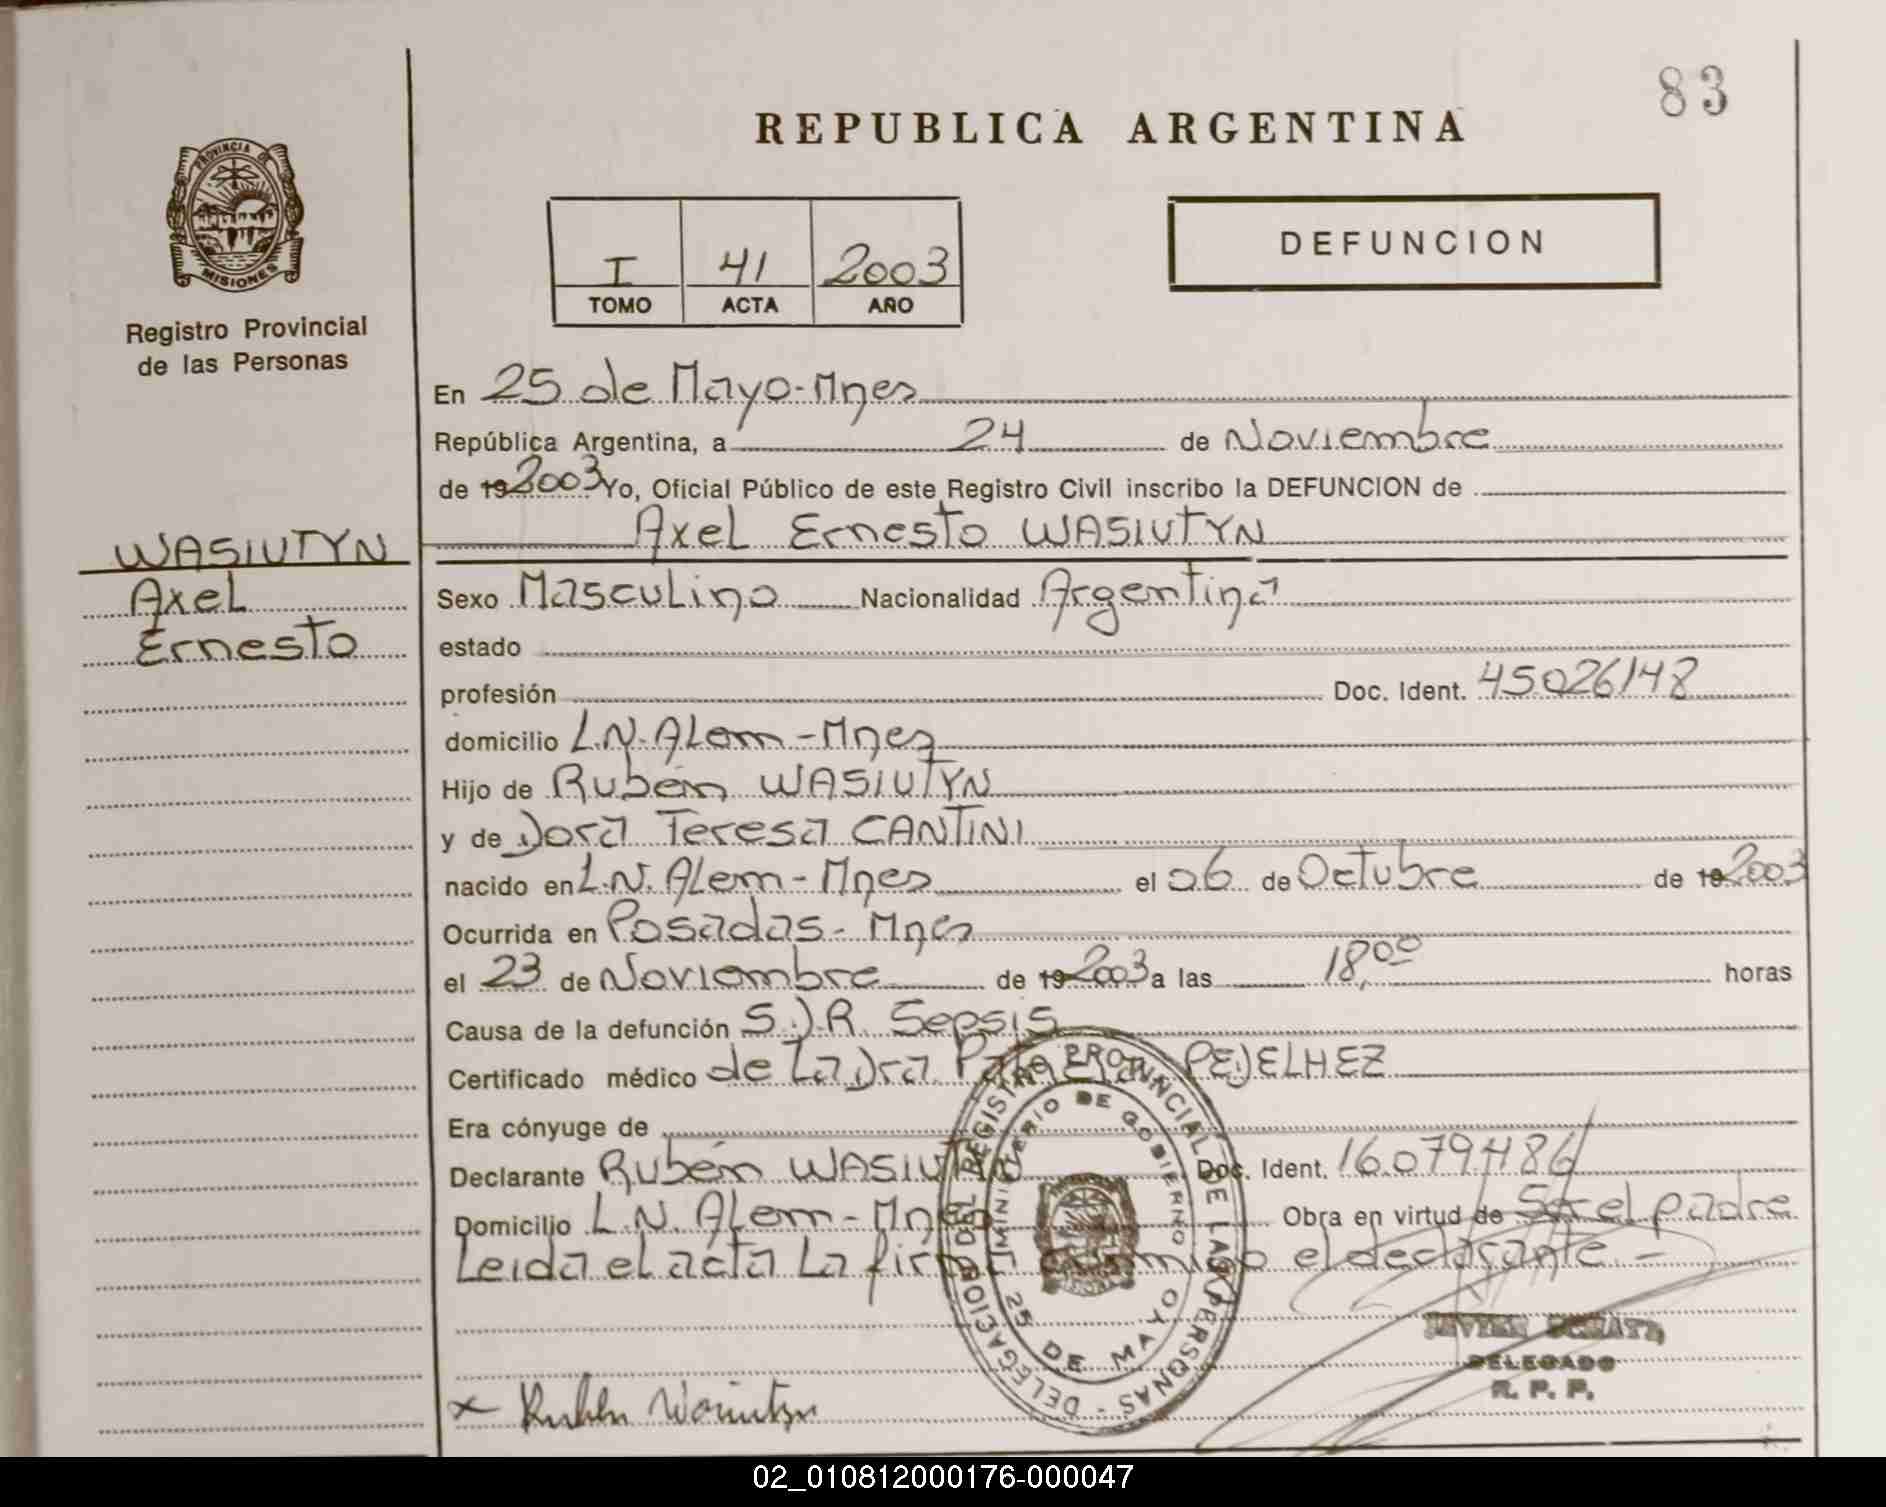 83
REPUBLICA ARGENTINA
PROVINCIA DE
MISIONES
Registro Provincial
de las Personas
I 41 2003
TOMO ACTA AÑO
DEFUNCION
En 25 de Mayo-Mnes
República Argentina, a 24 de Noviembre
de 19 2003 Yo, Oficial Público de este Registro Civil inscribo la DEFUNCION de
Axel Ernesto WASIUTYN
WASIUTYN
Axel
Ernesto
Sexo Masculino Nacionalidad Argentina
estado
profesión Doc. Ident. 45026148
domicilio L.N.ALem-Mnes
Hijo de Rubén WASIUTYN
y de Dora Teresa CANTINI
nacido en L.N.ALem-Mnes el 06 de Octubre de 19 2003
Ocurrida en Posadas-Mnes
el 23 de Noviembre de 19 2003 a las 18,00 horas
Causa de la defunción S.D.R. Sepsis
Certificado médico de La Dra PEJELHEZ
Era cónyuge de
Declarante Rubén WASIUTYN Doc. Ident. 16079486
Domicilio L.N. ALem-Mnes Obra en virtud de Ser el padre
Leida el acta La firma conmigo el declarante.-
DELEGACION DEL REGISTRO PROVINCIAL DE LAS PERSONAS -
MINISTERIO DE GOBIERNO
25 DE MAYO
JAVIER
DELEGADO
R. P. P.
x Ruben Wasiutyn
02_010812000176-000047